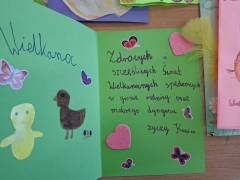 Wielkanoc
Zdrowych i
szczęśliwych Świąt
Wielkanocnych spędzonych
w gronie rodziny oraz
mokrego dyngusa
życzy Kasia